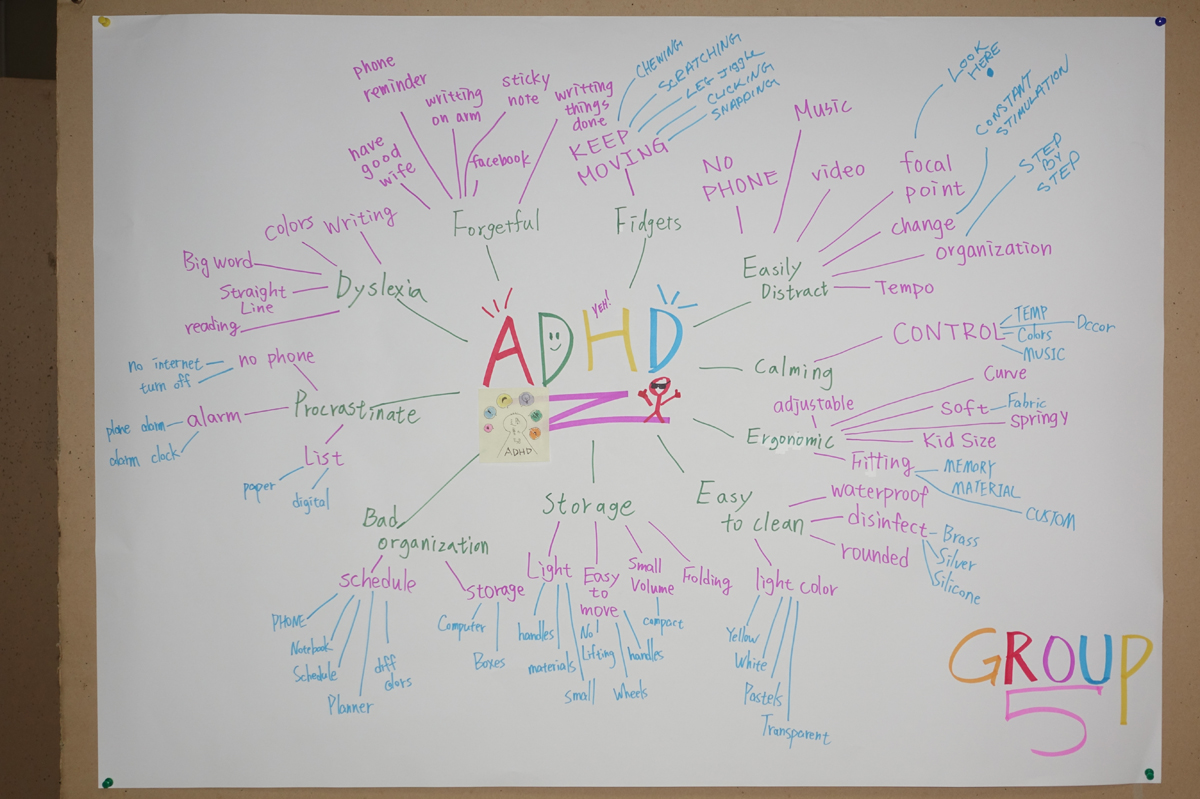 phone
reminder
writting
on arm
sticky
note
writting
things
done
have
good
wife
facebook
Forgetful
CHEWING
SCRATCHING
LEG JIGGLE
CLICKING
SNAPPING
KEEP
MOVING
Fidgets
NO
PHONE
Music
video
focal
point
LOOK
HERE
change
CONSTANT
STIMULATION
organization
STEP
BY
STEP
Tempo
Easily
Distract
colors
Writing
Big word
Straight
Line
reading
Dyslexia
YEH!
ADHD
ADHD
no internet
turn off
no phone
Procrastinate
phone alarm
alarm clock
alarm
List
paper
digital
Calming
CONTROL
TEMP
Colors
Decor
MUSIC
adjustable
Ergonomic
Curve
Soft
Fabric
Springy
Kid Size
Fitting
MEMORY
MATERIAL
CUSTOM
Easy
to clean
waterproof
disinfect
Brass
Silver
Silicone
rounded
light color
Yellow
White
Pastels
Transparent
Storage
Light
handles
materials
small
Easy
to
move
No
Lifting
Wheels
handles
Small
Volume
compact
Folding
Bad
organization
schedule
PHONE
Notebook
Schedule
Planner
diff
colors
storage
Computer
Boxes
GROUP
5